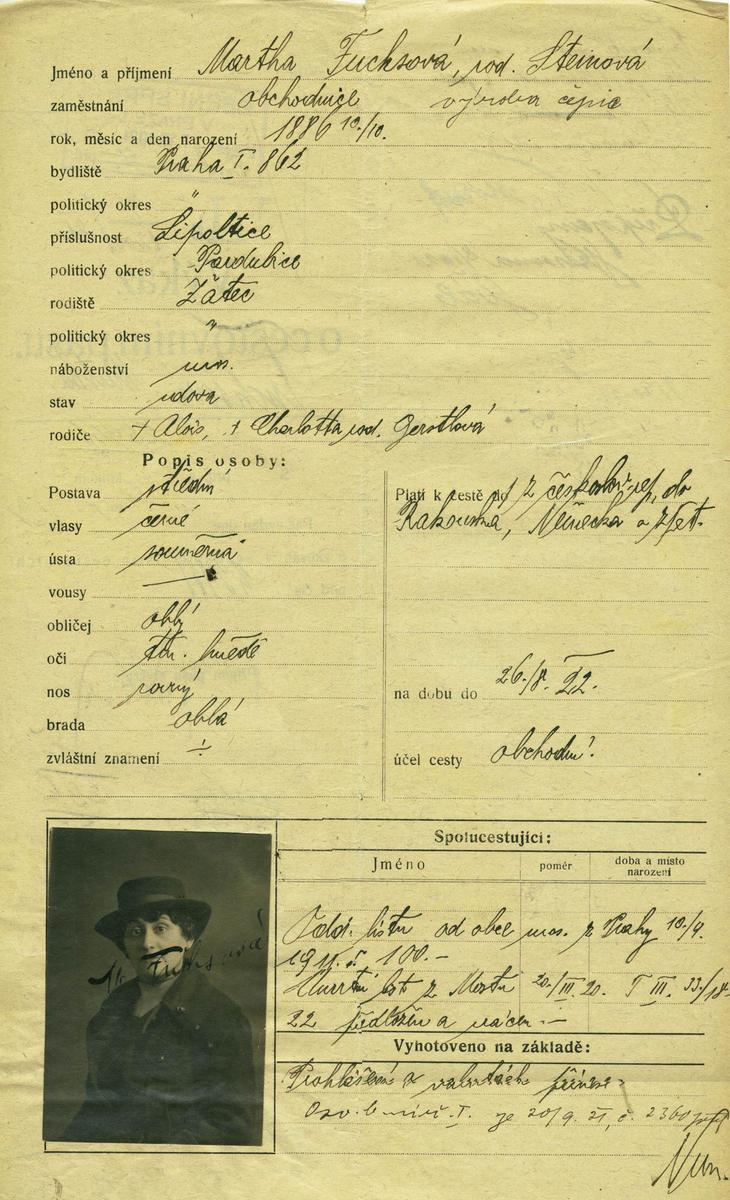 Jméno a příjmení Martha Fucksová, roz. Steinová
zaměstnání obchodnice výroba čepic
rok, měsíc a den narození 1886 10./10.
bydliště Praha I. 862
politický okres "
příslušnost Lipoltice
politický okres Pardubice
rodiště Žatec
politický okres "
náboženství mos.
stav vdova
rodiče + Alois, + Charlotta roz. Gerstlová
Popis osoby:
Postava střední
vlasy černé
ústa souměrná
vousy —
obličej oblý
oči tm. hnědé
nos rovný
brada oblá
zvláštní znamení ÷
Platí k cestě do z českoslov. rep. do
Rakouska, Německa a zpět.
na dobu do 26./8. 22.
účel cesty obchodní.
Spolucestující:
Jméno poměr doba a místo narození
Odd. listu od obce mos. z Prahy 10/9.
1911 č. 100.-
Úmrtní list z Mostu 20/III. 20.
22
M. Fuchsová
Vyhotoveno na základě:
Prohlášení o
20/9. 21, č. 2360